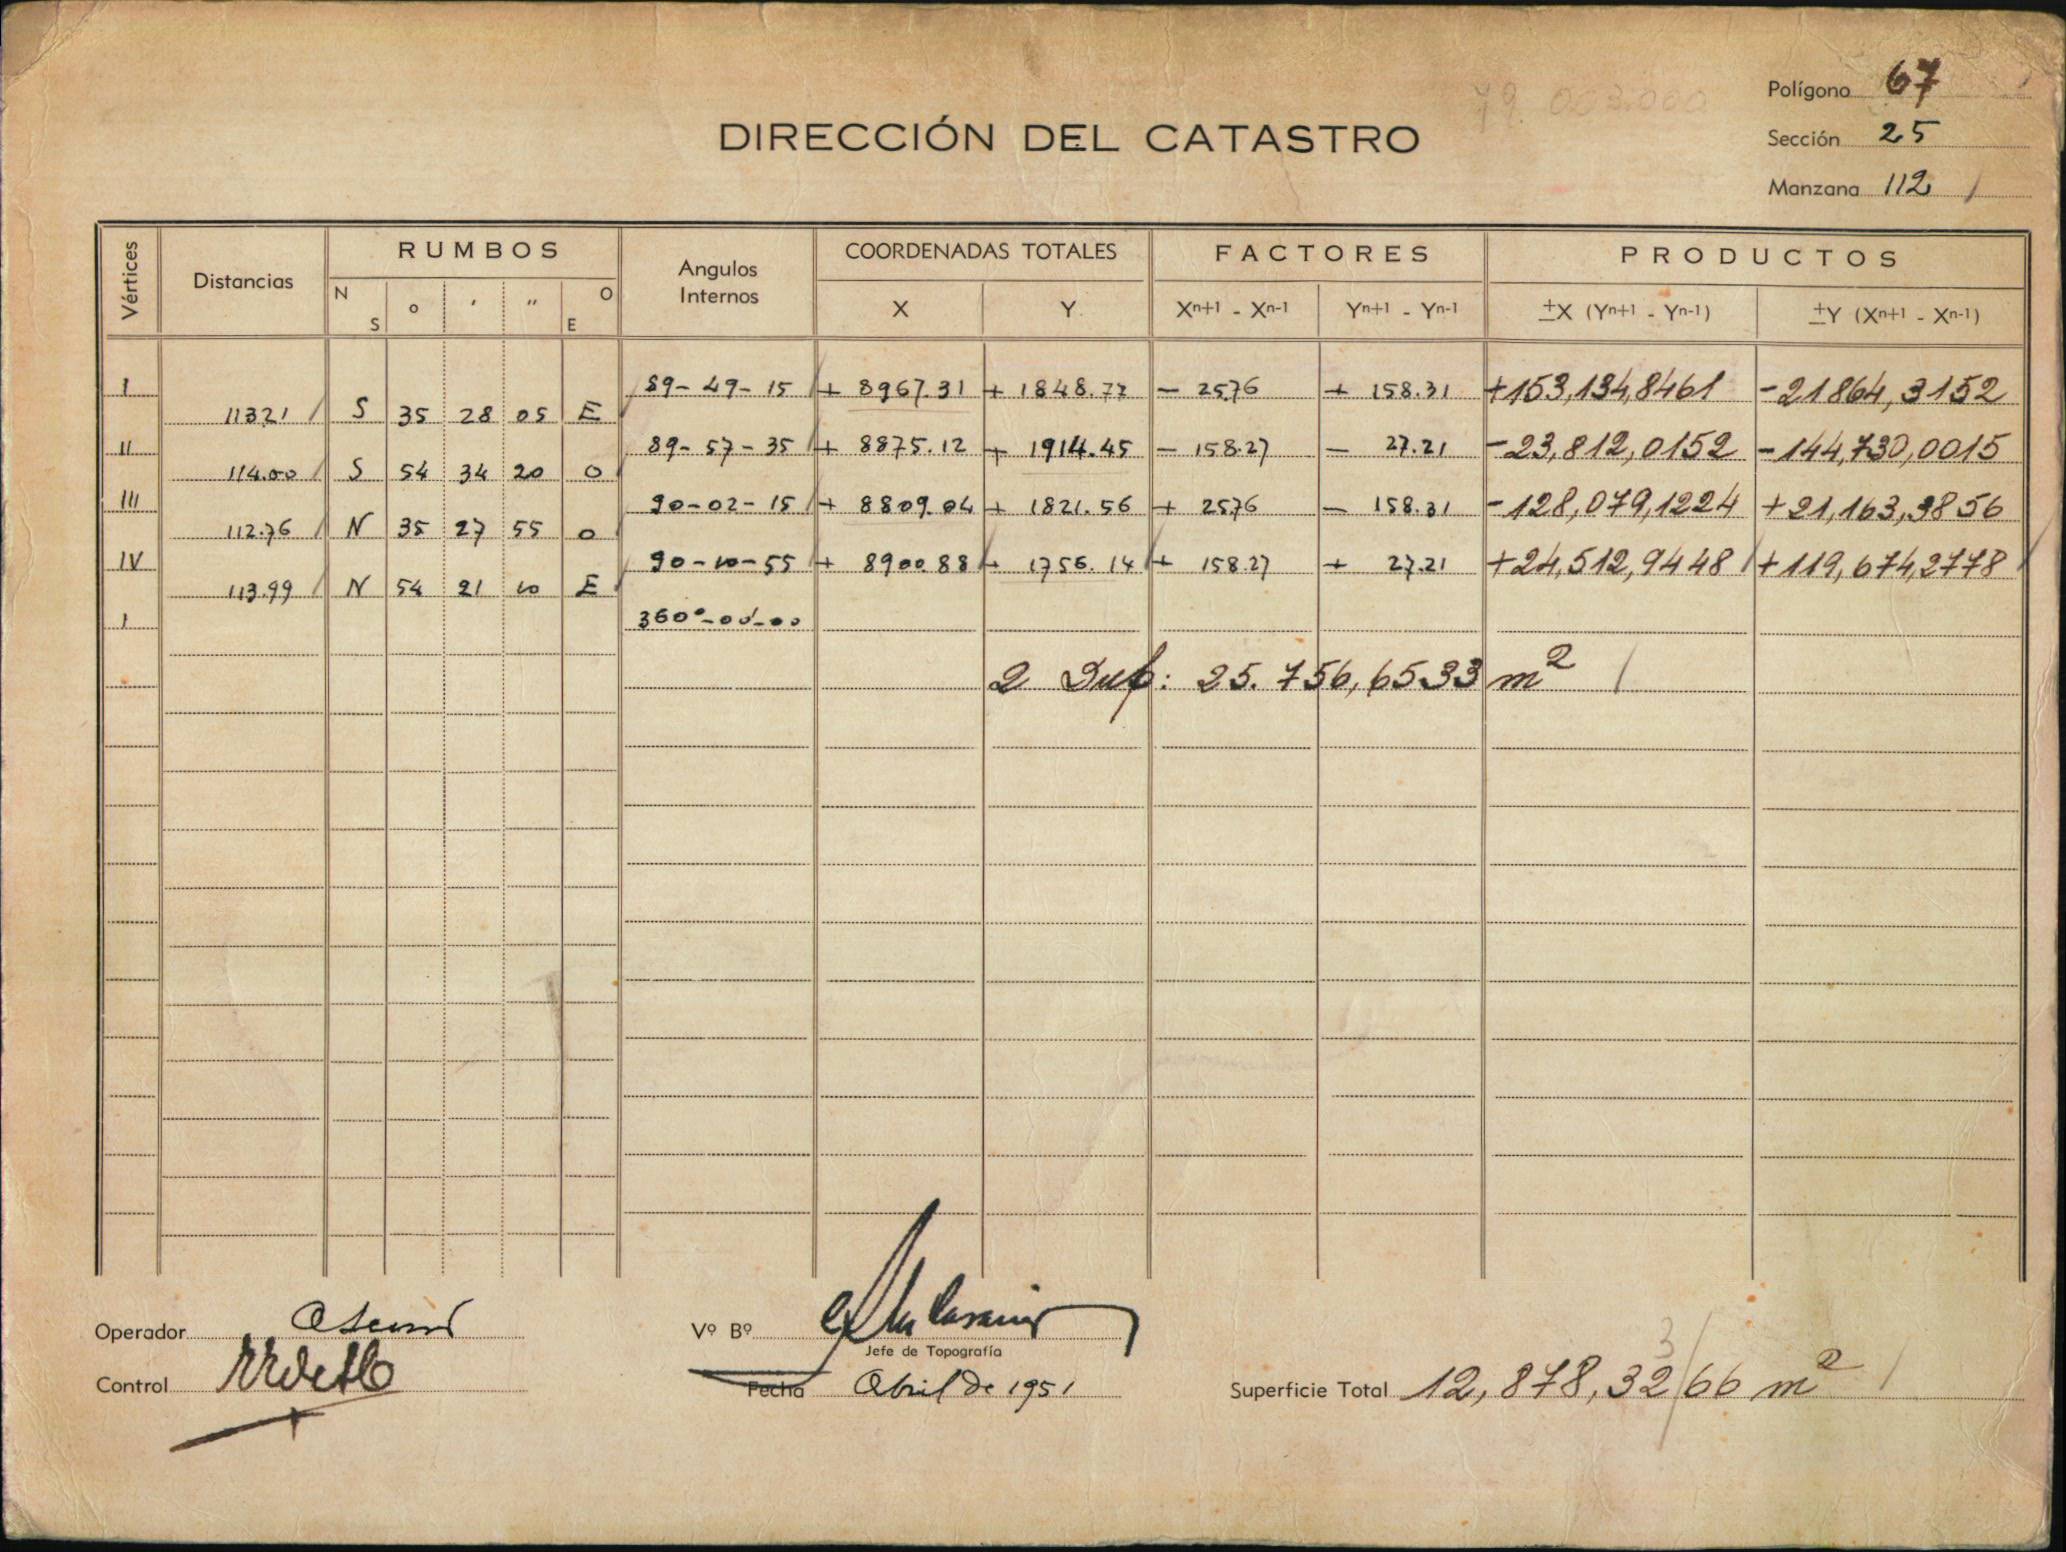 79.003.000
Polígono 67
DIRECCIÓN DEL CATASTRO
Sección 25
Manzana 112 /
Vértices Distancias RUMBOS Angulos Internos COORDENADAS TOTALES FACTORES PRODUCTOS
N S ° ' " O E X Y Xn+1 - Xn-1 Yn+1 - Yn-1 ±X (Yn+1 - Yn-1) ±Y (Xn+1 - Xn-1)
I 89-49-15 / + 8967.31 + 1848.77 - 25.76 + 158.31 +153,134,8461 -21864,3152
113.21 / S 35 28 05 E
II 89-57-35 + 8875.12 + 1914.45 - 158.27 - 27.21 -23,812,0152 -144,730,0015
114.00 / S 54 34 20 O
III 90-02-15 / + 8809.04 + 1821.56 + 25.76 - 158.31 -128,079,1224 +21,163,3856
112.76 / N 35 27 55 O
IV 90-10-55 + 8900.88 + 1756.14 + 158.27 + 27.21 +24,512,9448 / +119,674,2778 /
113.99 / N 54 21 10 E
I 360°-00-00
2 Sup: 25.756,6533 m² /
Operador
Vº Bº
Jefe de Topografía
Control
Fecha Abril de 1951
3
Superficie Total 12,878,32/66 m² /